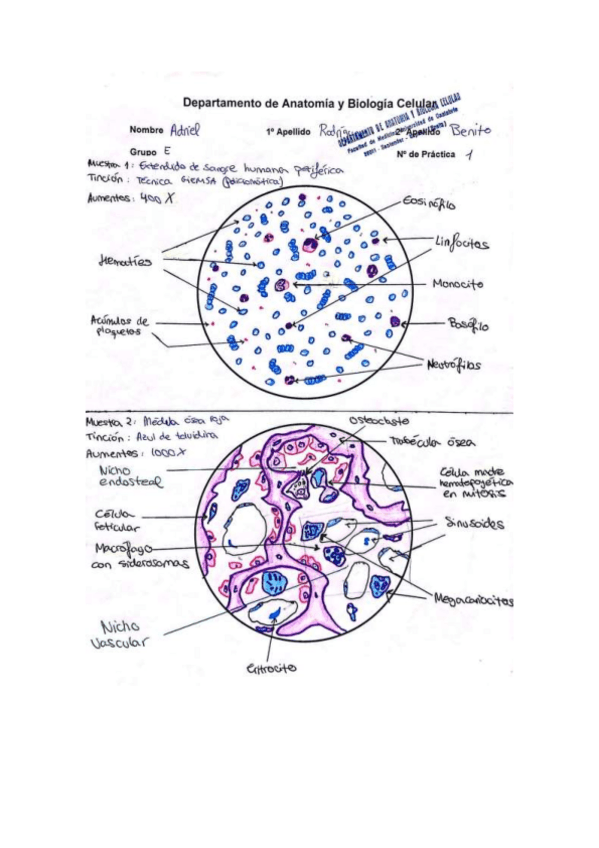 Departamento de Anatomía y Biología Celular
DEPARTAMENTO DE ANATOMIA Y BIOLOGIA CELULAR
Facultad de Medicina
Nombre Adriel 1º Apellido 2º Apellido Benito
Grupo E Nº de Práctica 1
Muestra 1: Extendido de sangre humana periférica
Tinción: Técnica GIEMSA
Aumentos: 400 X
Eosinófilo
Linfocitos
Hematíes
Monocito
Acúmulos de
plaquetas
Basófilo
Neutrófilos
Muestra 2: Médula ósea roja
Tinción: Azul de toluidina
Aumentos: 1000 X
Osteoclasto
Trabécula ósea
Nicho
endosteal
Célula madre
hematopoyética
en mitosis
Célula
reticular
Sinusoides
Macrófago
con siderosomas
Megacariocitos
Nicho
Vascular
Eritrocito